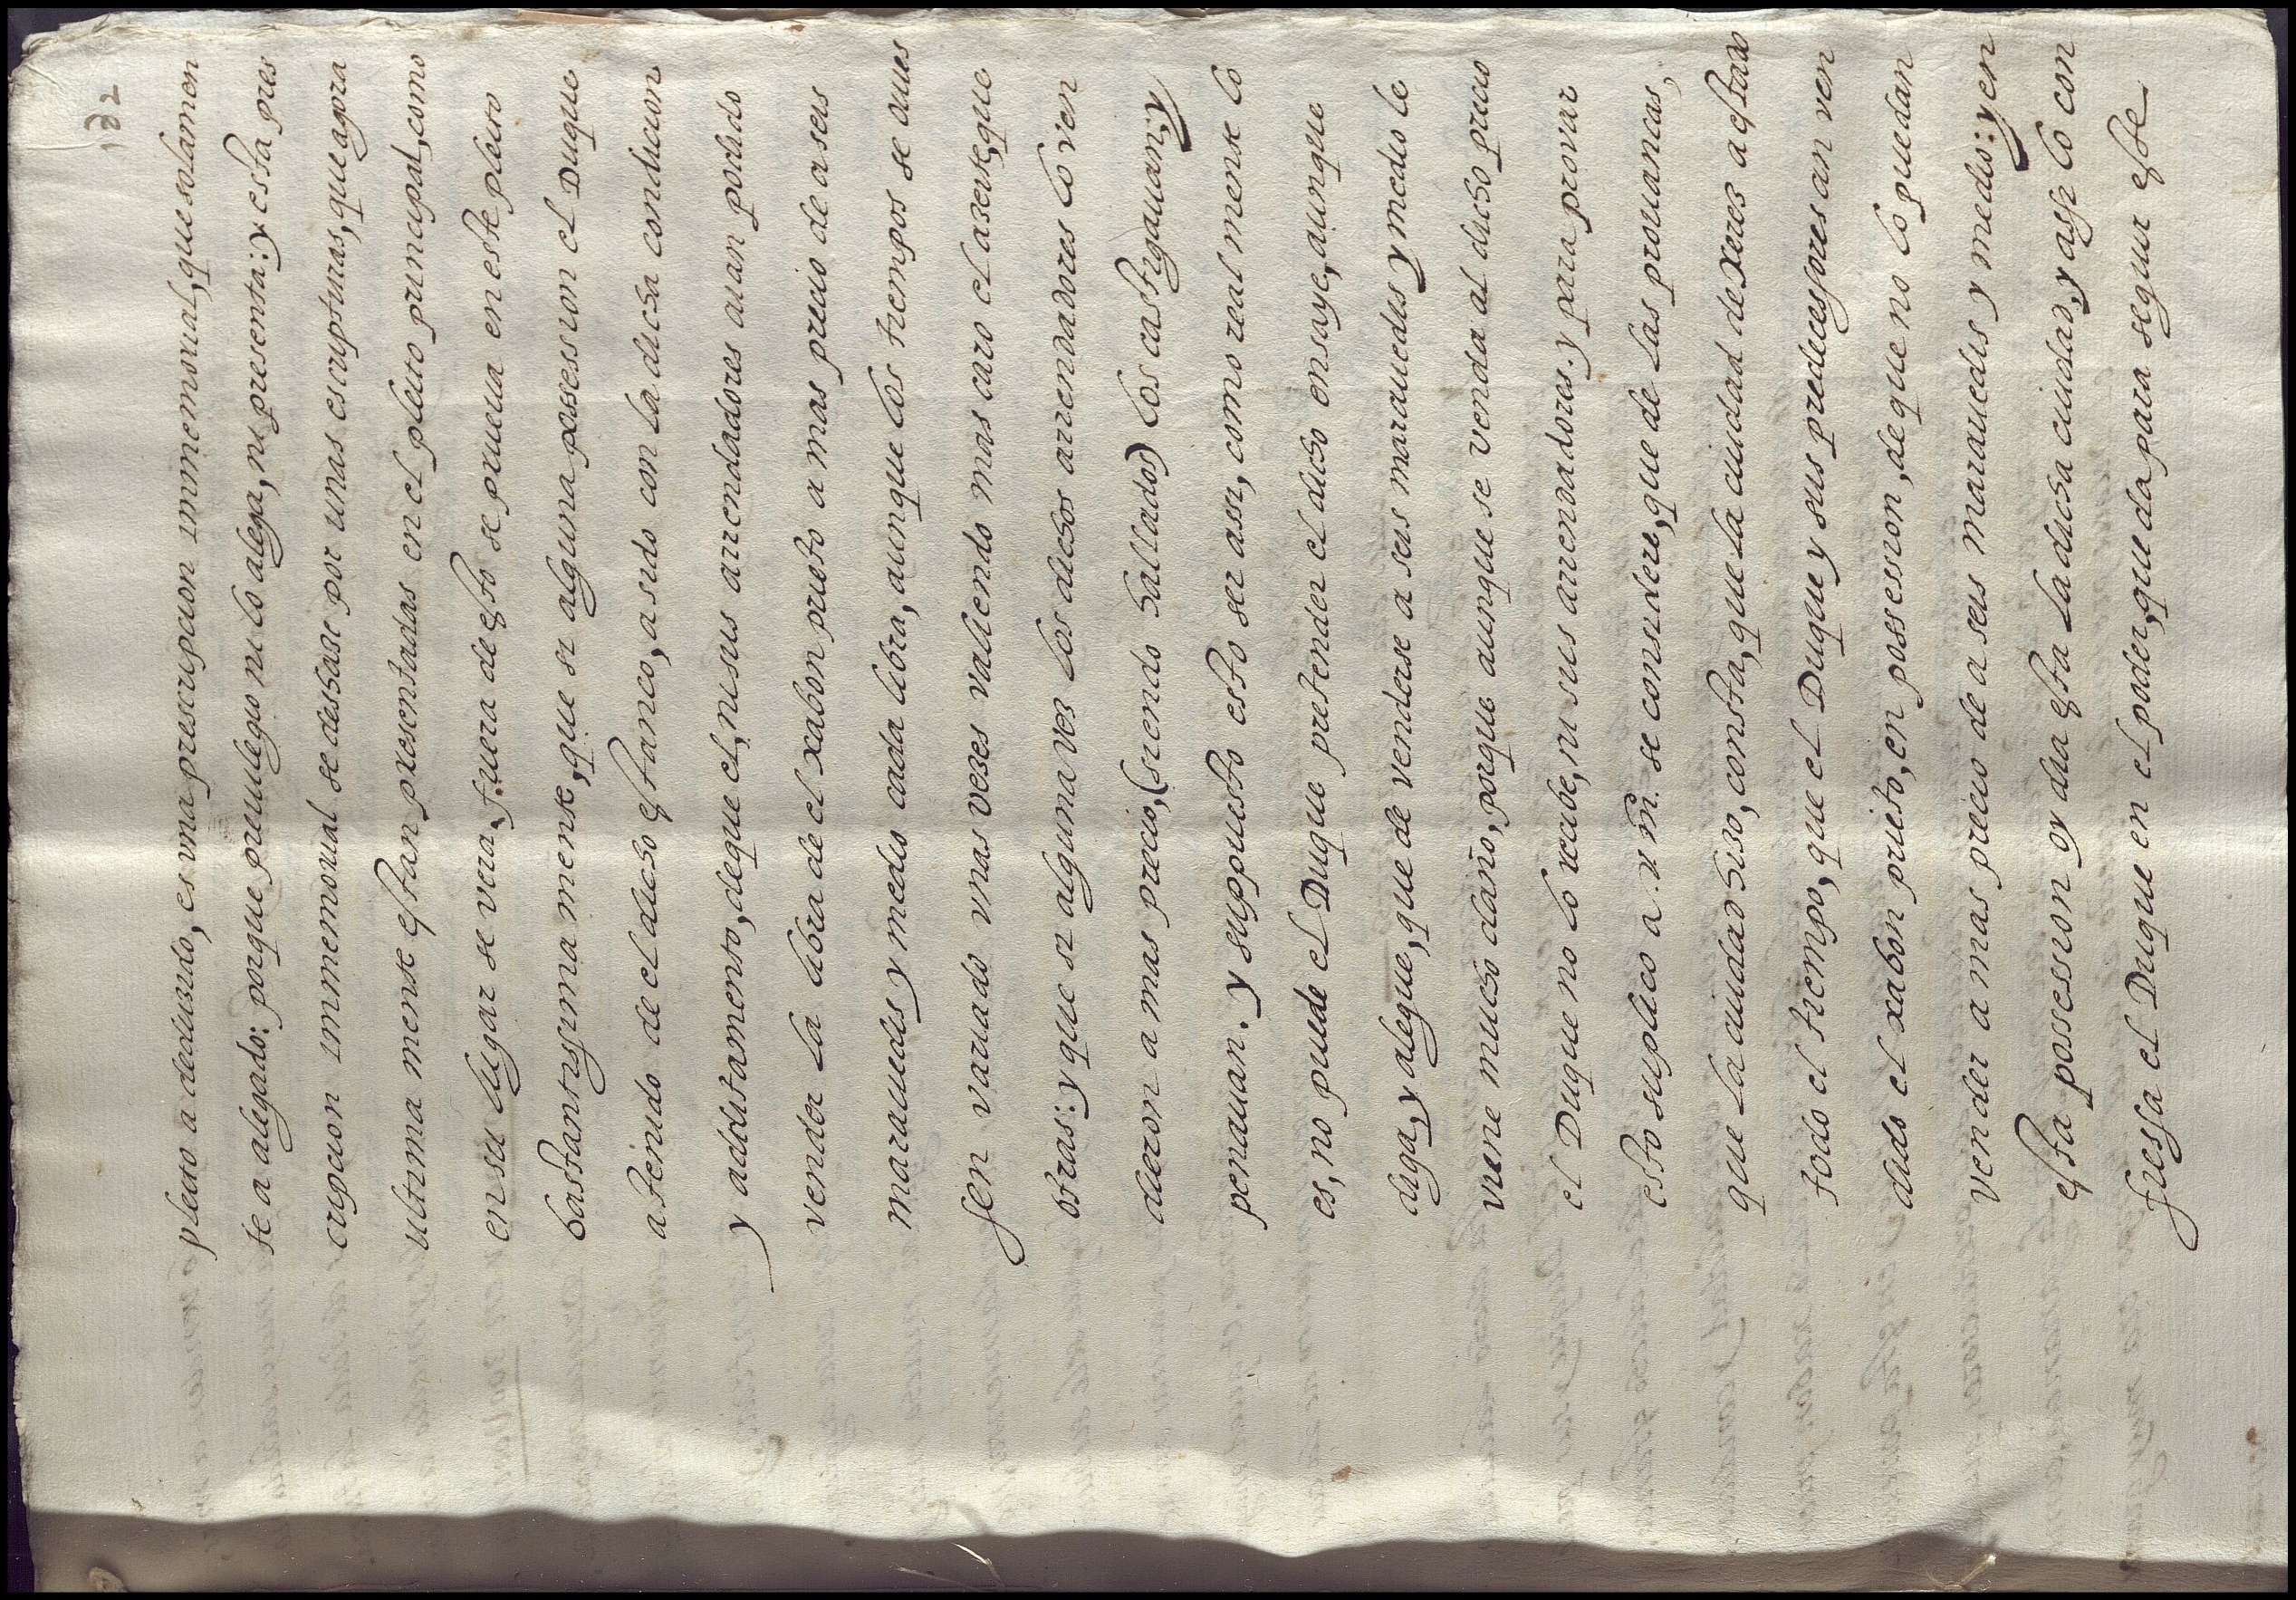 132
pleito a deduzido, es vna prescripcion immemorial, que solamen
te a alegado: porque priuilegio ni lo alega, ni presenta: y esta pres
cripcion immemorial se deshase por unas escripturas, que agora
ultima mente estan presentadas en el pleito principal, como
en su lugar se vera, fuera de esto se prueua en este pleito
bastantissima mente, que si alguna possession el Duque
a tenido de el dicho estanco, a sido con la dicha condicion
y additamento, de que el, ni sus arrendadores auan podido
vender la libra de el xabon prieto a mas precio de a seis
marauedis y medio cada libra, aunque los tiempos se auies
sen variado unas veses valiendo mas caro el aseite, que
otras: y que si alguna ves los dichos arrendadores lo ven
dieron a mas precio, (siendo hallados) los castigauan, y
penauan. y suppuesto esto ser assi, como real mente lo
es, no puede el Duque pretender el dicho ensaye, aunque
diga, y alegue, que de venderse a seis marauedis y medio le
viene mucho daño, porque aunque se venda al dicho precio
el Duque no lo recibe, ni sus arrendadores. y para prouar
esto suplico a v. m. se considere, que de las prouancas,
que la ciudad hizo, consta, que la ciudad de xeres a estado
todo el tiempo, que el Duque y sus predecessores an ven
dido el xabon prieto, en possession, de que no lo puedan
vender a mas precio de a seis marauedis y medio: y en
esta possession oy dia esta la dicha ciudad, y assi lo con
fiessa el Duque en el poder, que da para seguir este